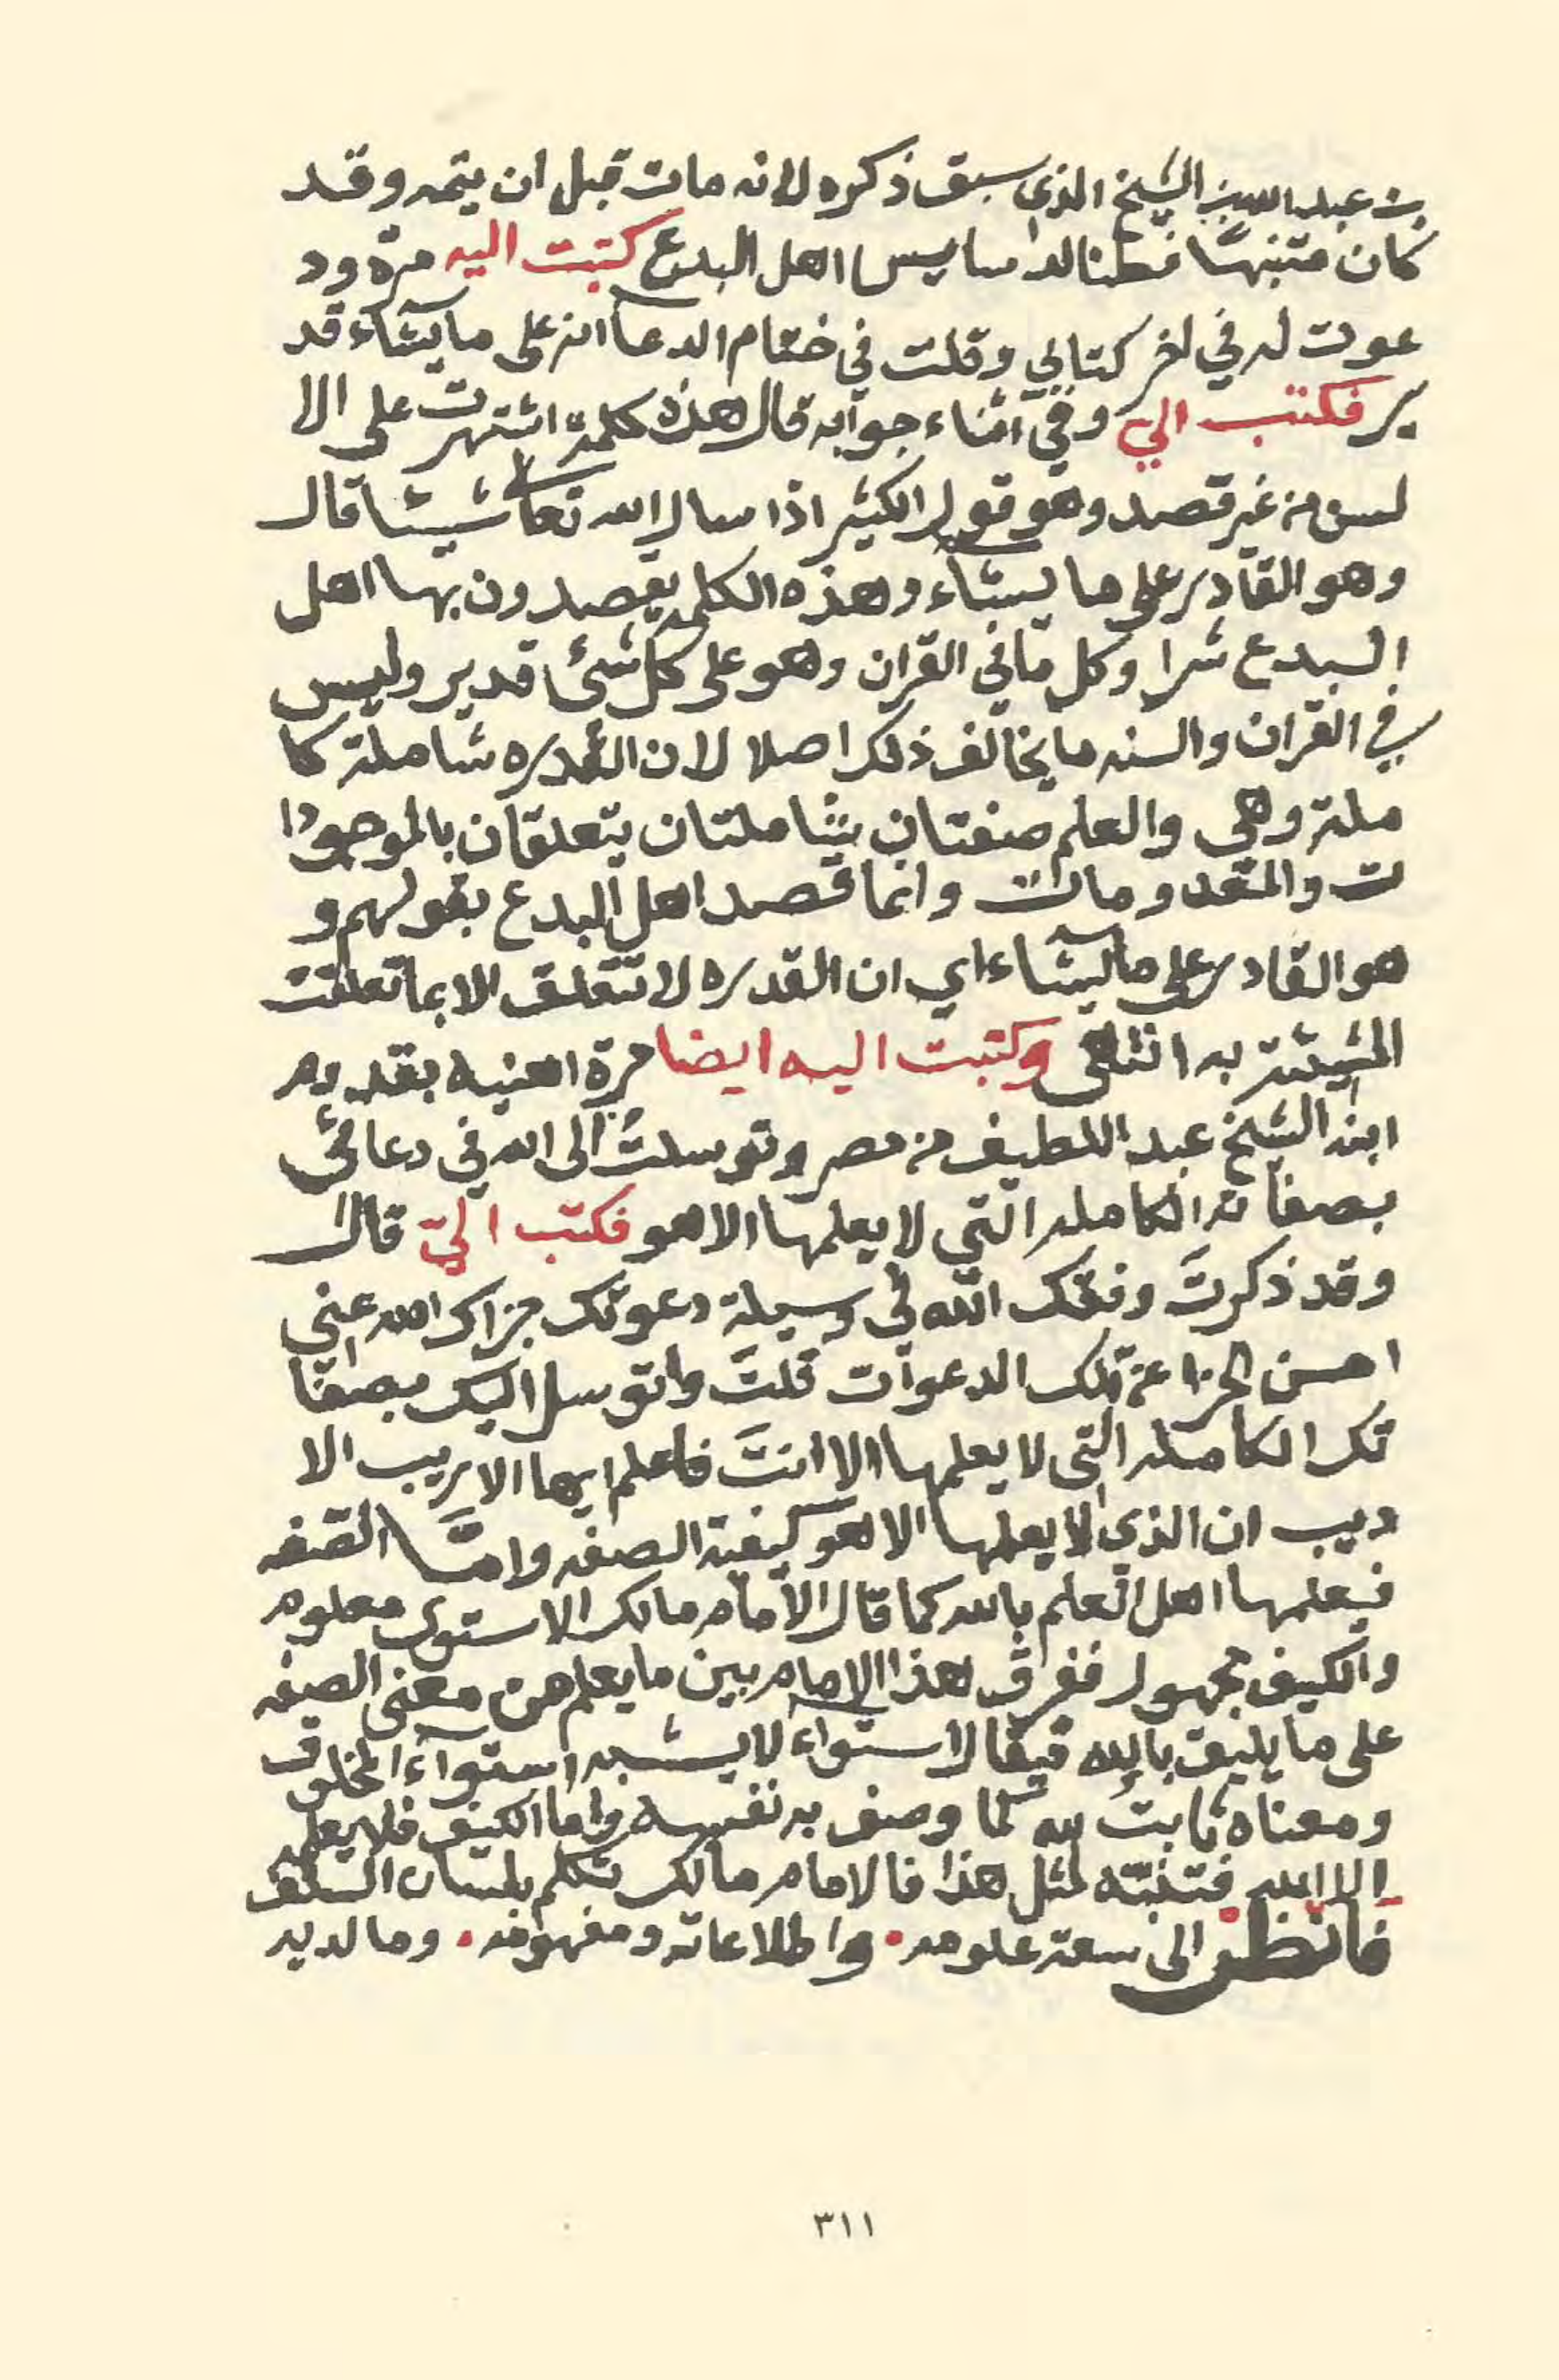 بن عبدالله بن الشيخ الذي سبق ذكره لانه مات قبل ان يتمه وقد
كان متنبها فطنا لدسايس اهل البدع كتبت اليه مرة ود
عوت له في اخر كتابي وقلت في ختام الدعا انه على ما يشاء قد
ير فكتب الي وفي اثناء جوابه قال هذه كلمة اشتهرت على الا
لسن من غير قصد وهو قول الكثير اذا سال الله تعالى شيئا قال
وهو القادر على ما يشاء وهذه الكلمه يقصدون بها اهل
البدع شرا وكل ما في القران وهو على كل شئ قدير وليس
في القران والسنه ما يخالف ذلك اصلا لان القدره شاملة كا
ملة وهي والعلم صفتان شاملتان يتعلقان بالموجودا
ت والمعدومات وانما قصد اهل البدع بقولهم و
هو القادر على ما يشاء اي ان القدره لا تتعلق الا بما تعلقت
المشيئة به انتهى وكتبت اليه ايضا مرة اهنيه بقدوم
ابنه الشيخ عبد اللطيف من مصر وتوسلت الى الله في دعائي
بصفاته الكامله التي لا يعلمها الا هو فكتب الي قال
وقد ذكرتَ وفقك الله في وسيلة دعوتك جزاك الله عني
احسن الجزا عن تلك الدعوات قلتَ واتوسل اليك بصفا
تك الكامله التى لا يعلمها الا انتَ فاعلم ايها الاريب الا
ديب ان الذي لا يعلمها الا هو كيفية الصفه وامَّا الصفه
فيعلمها اهل العلم بالله كما قال الامام مالك الاستوى معلوم
والكيف مجهول ففرق هذا الامام بين ما يعلم من معنى الصفه
على ما يليق بالله فيقال استواء لا يشبه استوآء المخلوق
ومعناه ثابت لله كما وصف به نفسه واما الكيف فلا يعلمه
الا الله فتنبّه لمثل هذا فالامام مالك تكلم بلسان السلف
فانظر الى سعة علومه. واطلاعاته ومفهومه. وما لديه
٣١١